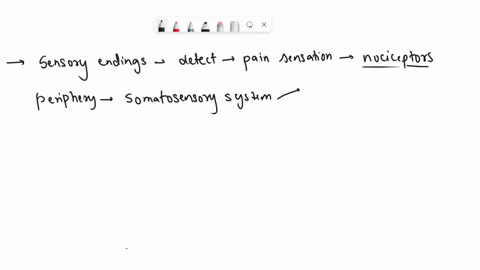 → Sensory endings → detect → pain sensation → nociceptors
periphery → somatosensory system